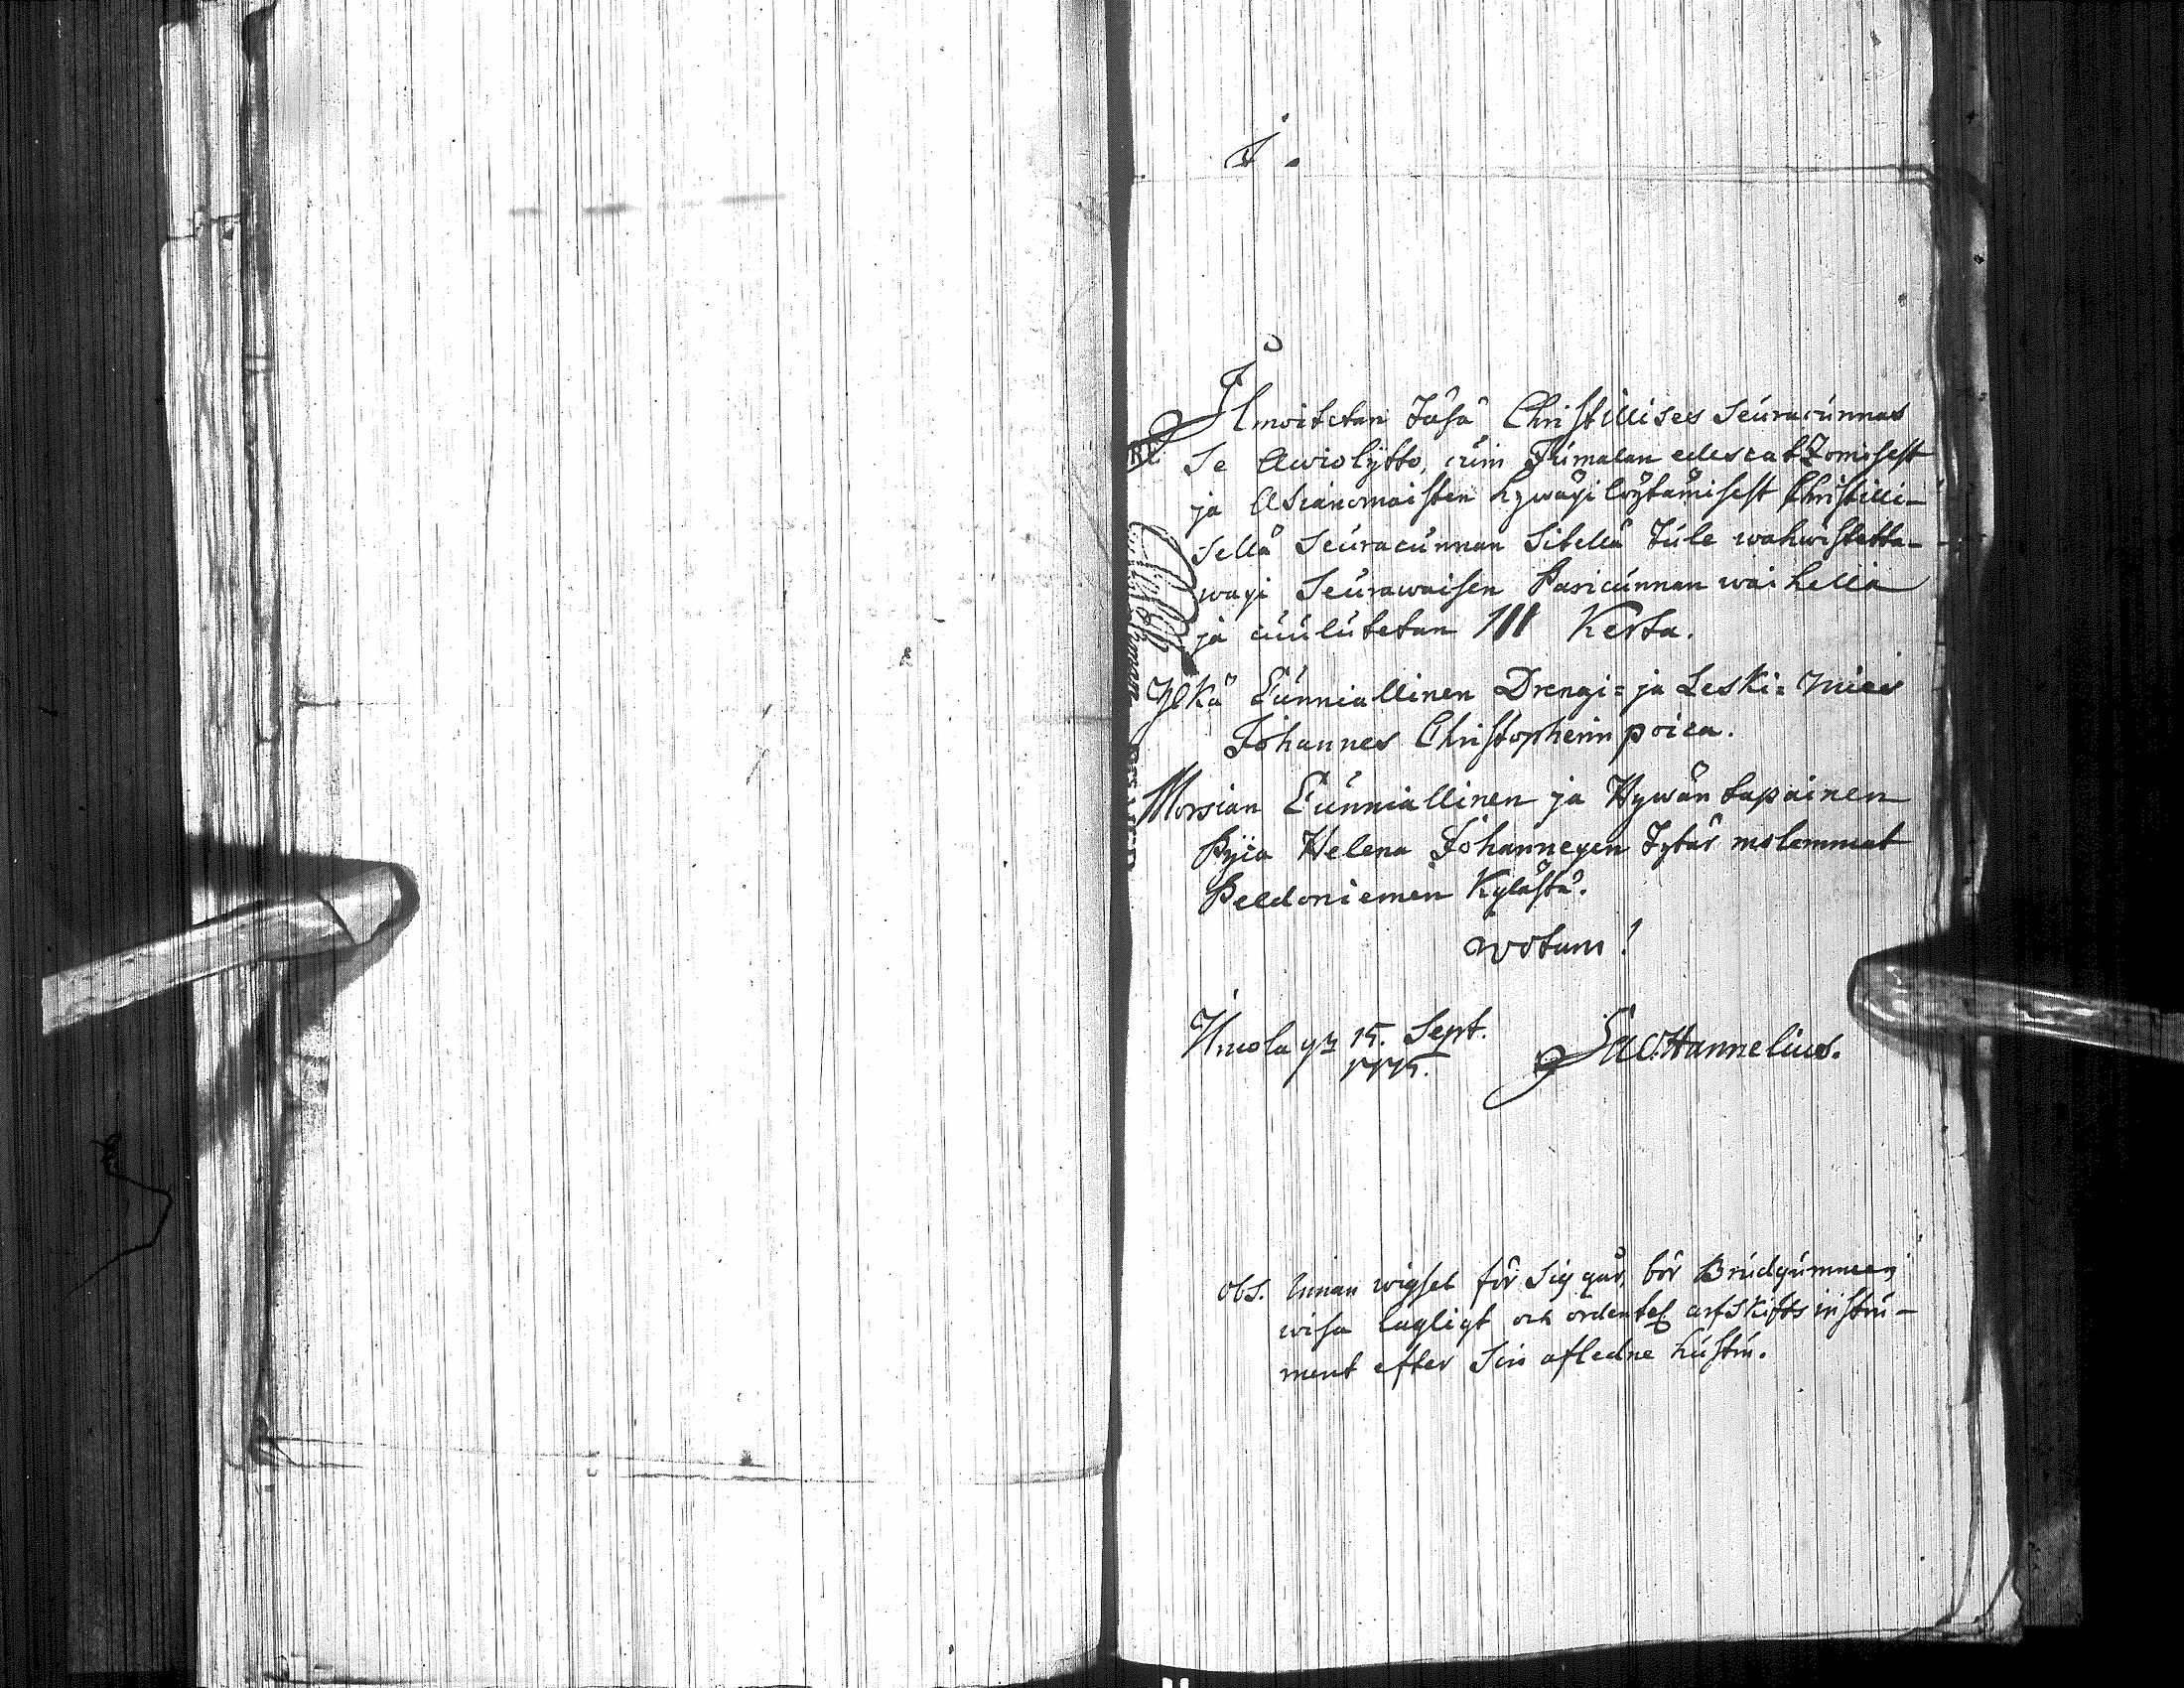 Ilmoitetan Täsä Christillises Seuracunnas
Se Awiolijtto, cuin Jumalan edescatzomisest
ja Asianomaisten hywäxi löytämisest Christilli-
sellä Seuracunnan Sitellä Tule wahwistetta-
waxi Seurawaisen Pariscunnan waihella
ja cuulutetan III Kerta.
Ylkä Cunniallinen Drengi= ja Leski= mies
Johannes Christopherin poica.
Morsian Cunniallinen ja Hywäntapainen
Pijca Helena Johannexen Tytär molemmat
Peldoniemen Kylästä.
wotum!
15. Sept.
1775.
Hannelius.
Obs. Innan wigsel för Sig går, bör Brudgummen
wisa lagligt och ordentel arfskiftsinstru-
ment efter Sin afledne hustru.